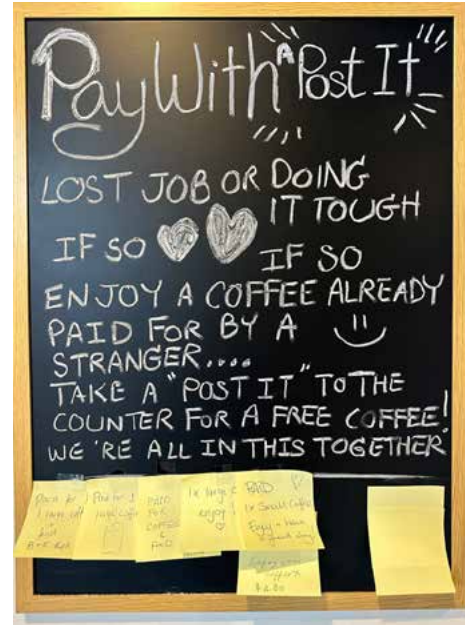 Pay With A Post It
LOST JOB OR DOING
IT TOUGH
IF SO
IF SO
ENJOY A COFFEE ALREADY
PAID FOR BY A
STRANGER....
TAKE A "POST IT" TO THE
COUNTER FOR A FREE COFFEE!
WE'RE ALL IN THIS TOGETHER
Paid for
Paid for
PAID
FOR
COFFEE
&
FOOD
1x large
enjoy!
PAID
1x Small Coffee
Enjoy + have
a good day